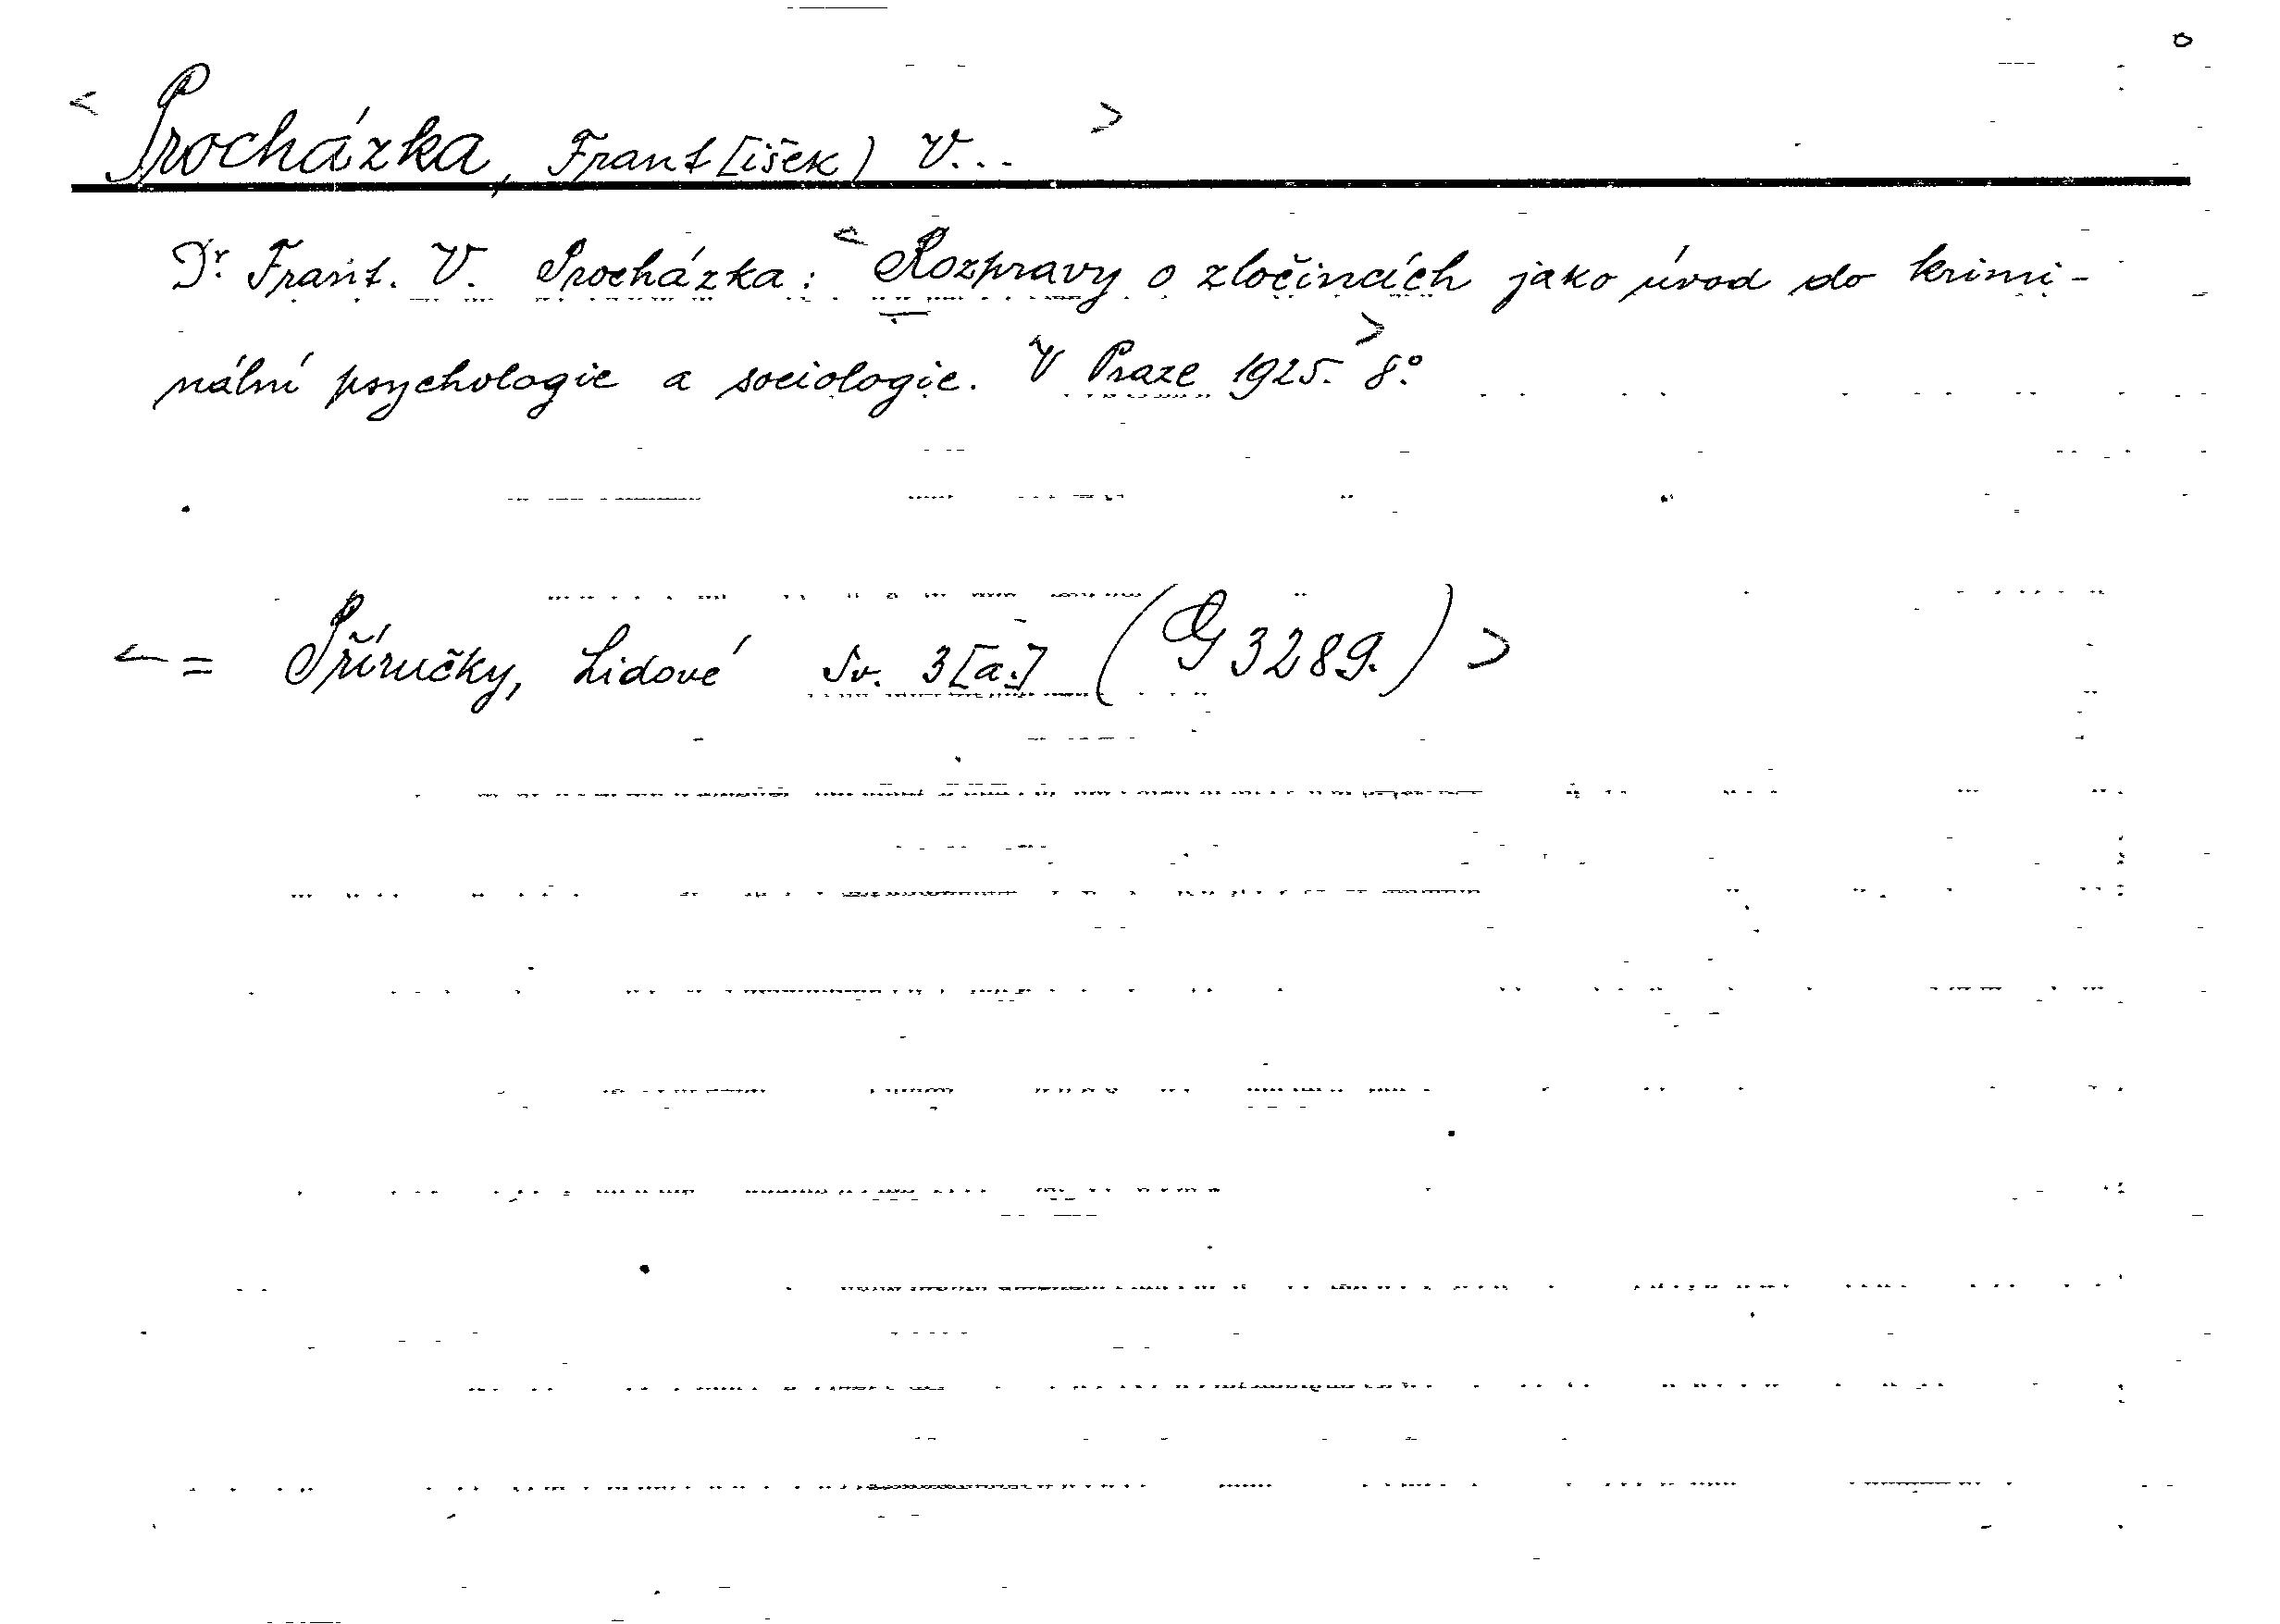 < Procházka, Frant[išek) V... >
Dr. Frant. V. Procházka: < Rozpravy o zločincích jako úvod do krimi-
nální psychologie a sociologie. V Praze 1925. > 8°.
<= Příručky, Lidové Sv. 3[a.] (G 3289.) >